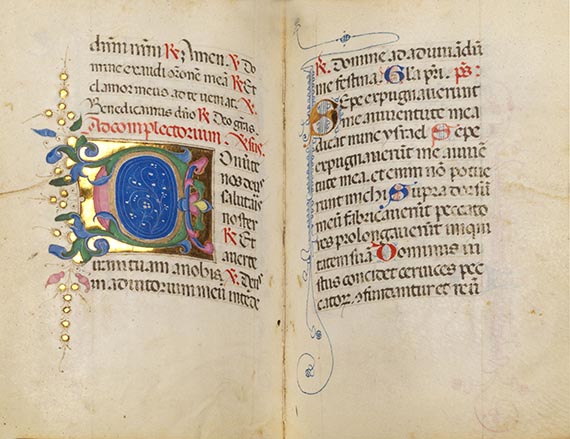 dñm nrm ℟ Amen. ℣ Do
mine exaudi orōnē meā ℟ Et
clamor meus ad te veniat. ℣
Benedicamus dño ℟ Deo gr̄as.
Ad complectorium. ℣sus.
Onuite
nos deus
salutaris
noster
℟ Et
averte
iram tuam a nobis. ℣ Deus
in adiutorium meū intēde
℟ Domine ad adiuuādū
me festina. Gl̄a pr̄i. ps̄:
Sepe expugnauerunt
me a iuuentute mea
dicat nunc ysrael. Sepe
expugnauerunt me a iuuen
tute mea. et enim non potue
runt michi. Supra dorsū
meū fabricauerunt peccato
res prolongauerunt iniqui
tatem suā. Dominus iu
stus concidet ceruices pec
cator, 9fundantur et